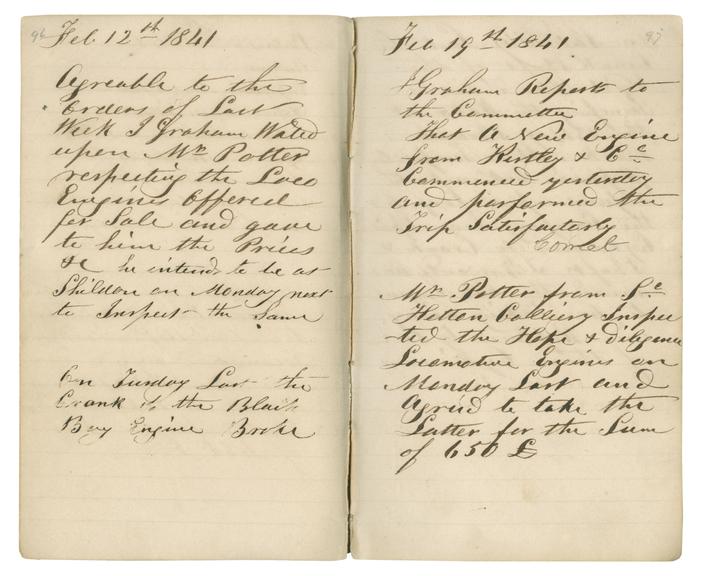 96
Feb 12th 1841
Agreable to the
Orders of Last
Week I Graham Waited
upon Mr Potter
respecting the Loco
Engines Offered
for Sale and gave
to him the Prices
&c he intends to be at
Shildon on Monday next
to Inspect the Same
On Tuesday Last the
Crank of the Black
Boy Engine Broke
97
Feb 19th 1841
J Graham Reports to
the Committee
That A New Engine
from Kirtley & Co
Commenced yesterday
and performed the
Trip Satisfacterly
Correct
Mr Potter from So
Hetton Colliery Inspec
-ted the Hope & Diligence
Locomotive Engines on
Monday Last and
Agreed to take the
Latter for the Sum
of 650 £